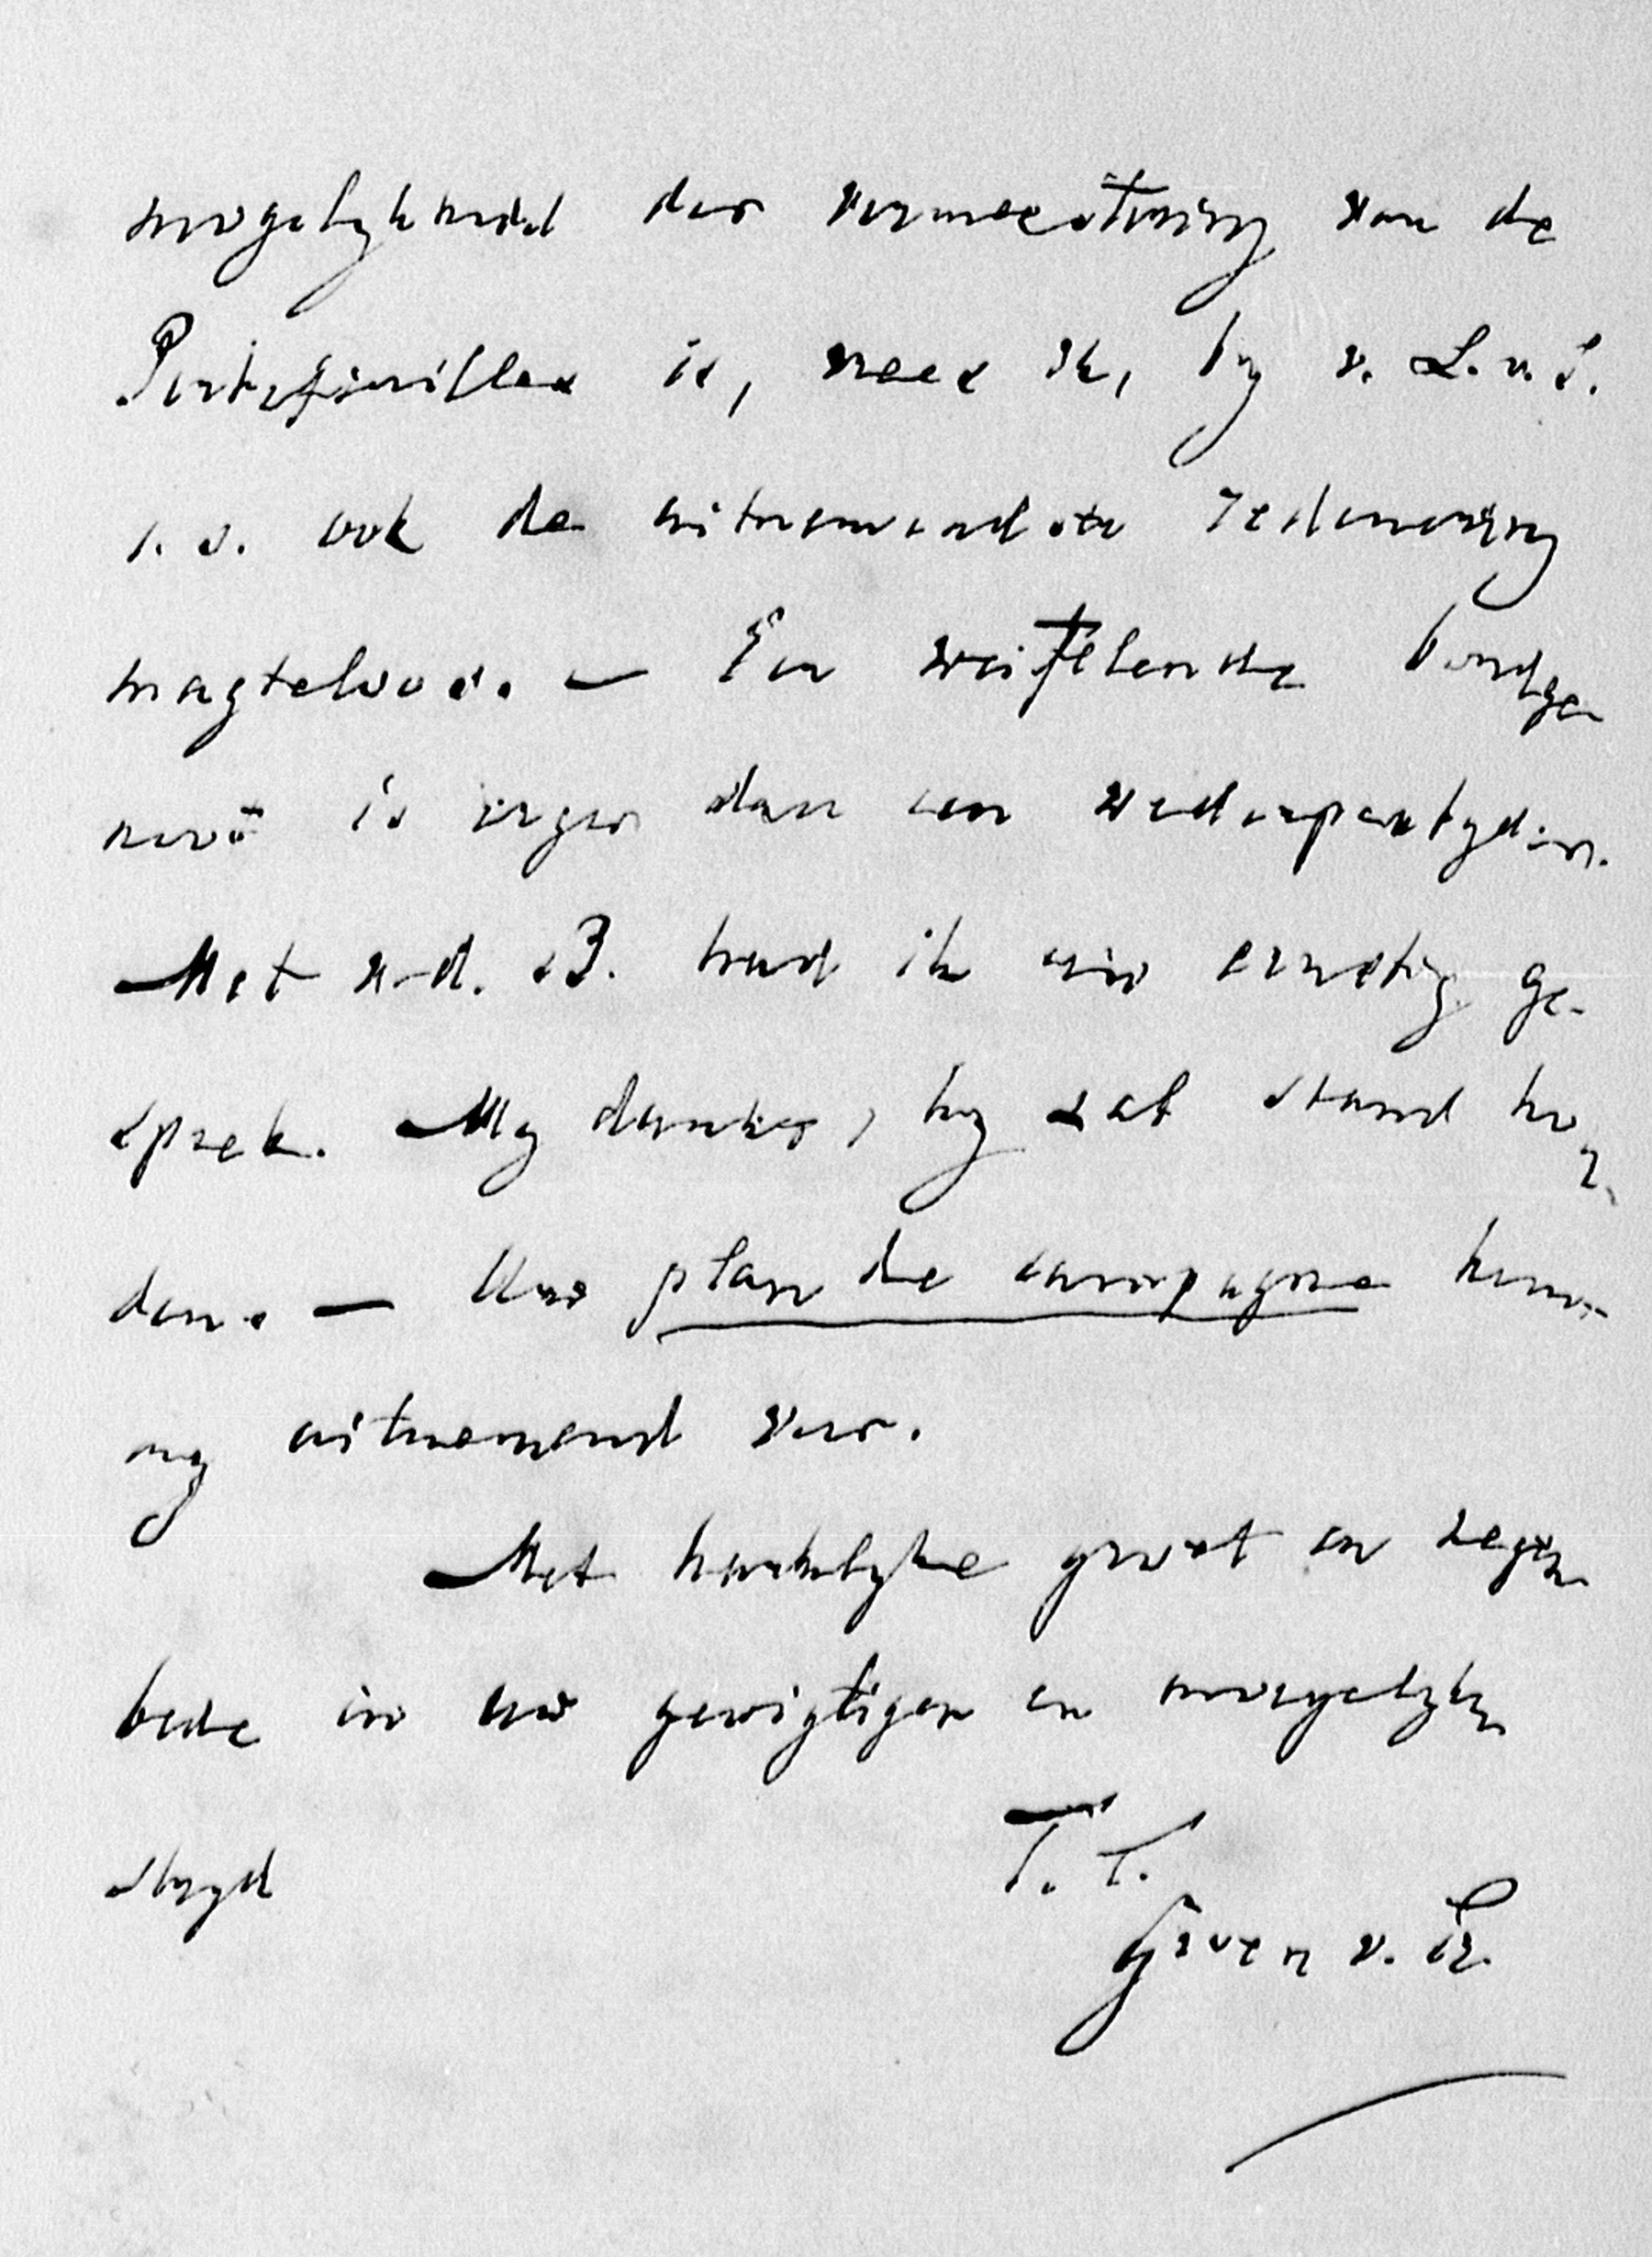 mogelykheid der vermeestering van de
Portefeuilles is, vrees ik, by v. L. v. S.
e. a. ook de uitnemendste redenering
magteloos. — Een weifelende bondge-
noot is erger dan een wederpartyder.
Met v. d. B. had ik een ernstig ge-
sprek. My dunkt, hy zal stand hou-
den. — Uw plan de campagne komt
my uitnemend voor.
Met hartelyke groet en zegen
bede in uw gewigtigen en moeyelyken
stryd
T. T.
Groen v. Pr.